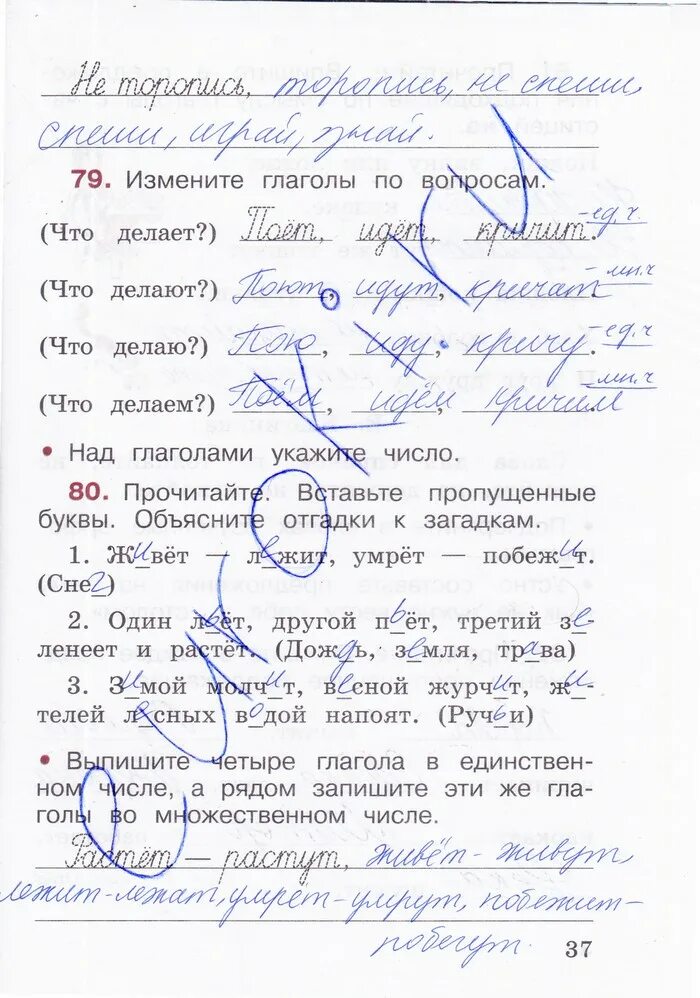 Не торопись, торопись, не спеши,
спеши, играй, знай.
79. Измените глаголы по вопросам.
(Что делает?) Поёт, идёт, кричит. -ед.ч.
(Что делают?) Поют, идут, кричат. -мн.ч
(Что делаю?) Пою, иду, кричу. -ед.ч
(Что делаем?) Поём, идём, кричим -мн.ч
• Над глаголами укажите число.
80. Прочитайте. Вставьте пропущенные
буквы. Объясните отгадки к загадкам.
1. Живёт — лежит, умрёт — побежит.
(Снег)
2. Один льёт, другой пьёт, третий зе-
ленеет и растёт. (Дождь, земля, трава)
3. Зимой молчит, весной журчит, жи-
телей лесных водой напоят. (Ручьи)
• Выпишите четыре глагола в единствен-
ном числе, а рядом запишите эти же гла-
голы во множественном числе.
Растёт — растут, живёт - живут,
лежит-лежат, умрёт-умрут, побежит-
побегут.
37